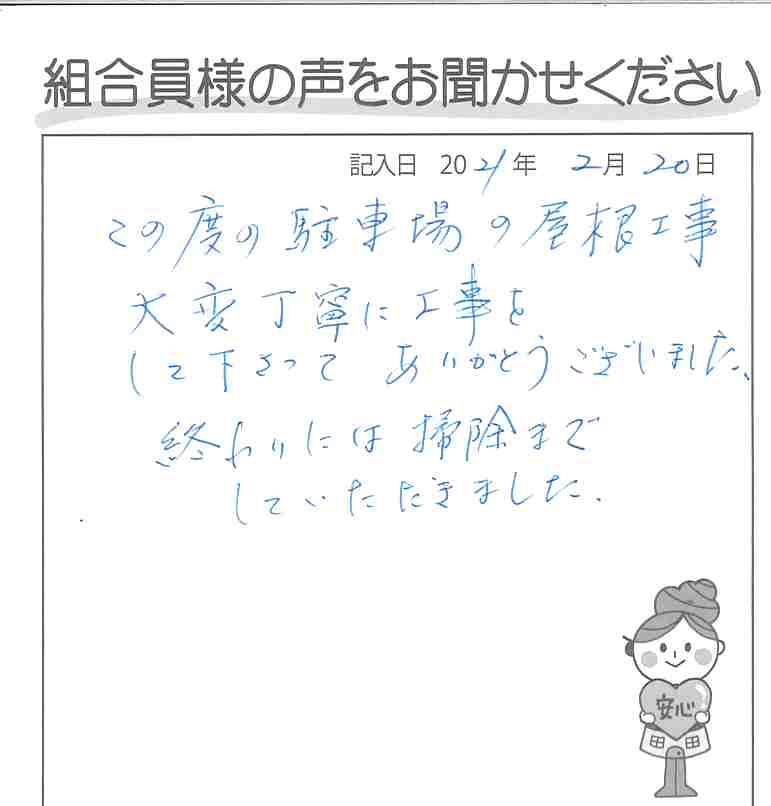 組合員様の声をお聞かせください
記入日 2021年 2月 20日
この度の駐車場の屋根工事
大変丁寧に工事を
して下さって ありがとうございました、
終わりには掃除まで
していただきました.
安心